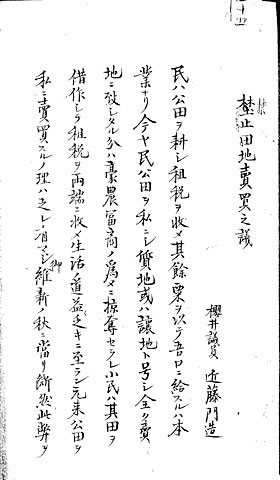 禁止田地賣買之議
櫻井議員 近藤門造
民ハ公田ヲ耕シ租税ヲ收メ其餘粟ヲ以テ吾口ニ給スルハ本
業ナリ今ヤ民公田ヲ私ニシ質地或ハ讓地ト号シ全ク賣
地ニ致シタル分ハ豪農冨商ノ爲メニ掠奪セラレ小民ハ其田ヲ
借作シテ租税ヲ兩端ニ收メ生活ノ道益乏キニ至ラン元来公田ヲ
私ニ賣買スルノ理ハ之レ有マシ御維新ノ秋ニ當リ断然此弊ヲ